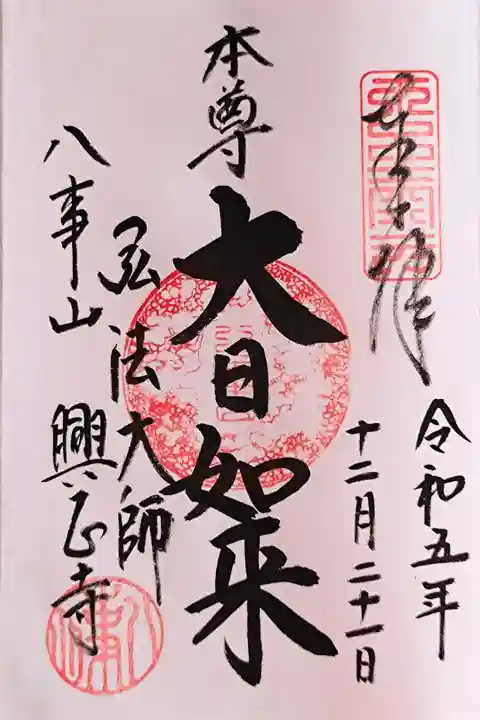 奉拝
令和五年
十二月二十一日
本尊
大日如来
弘法大師
八事山
興正寺